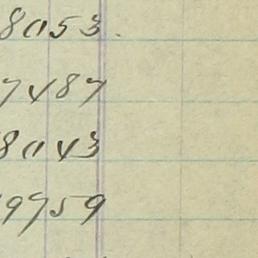 8053.
7487
8043
9959